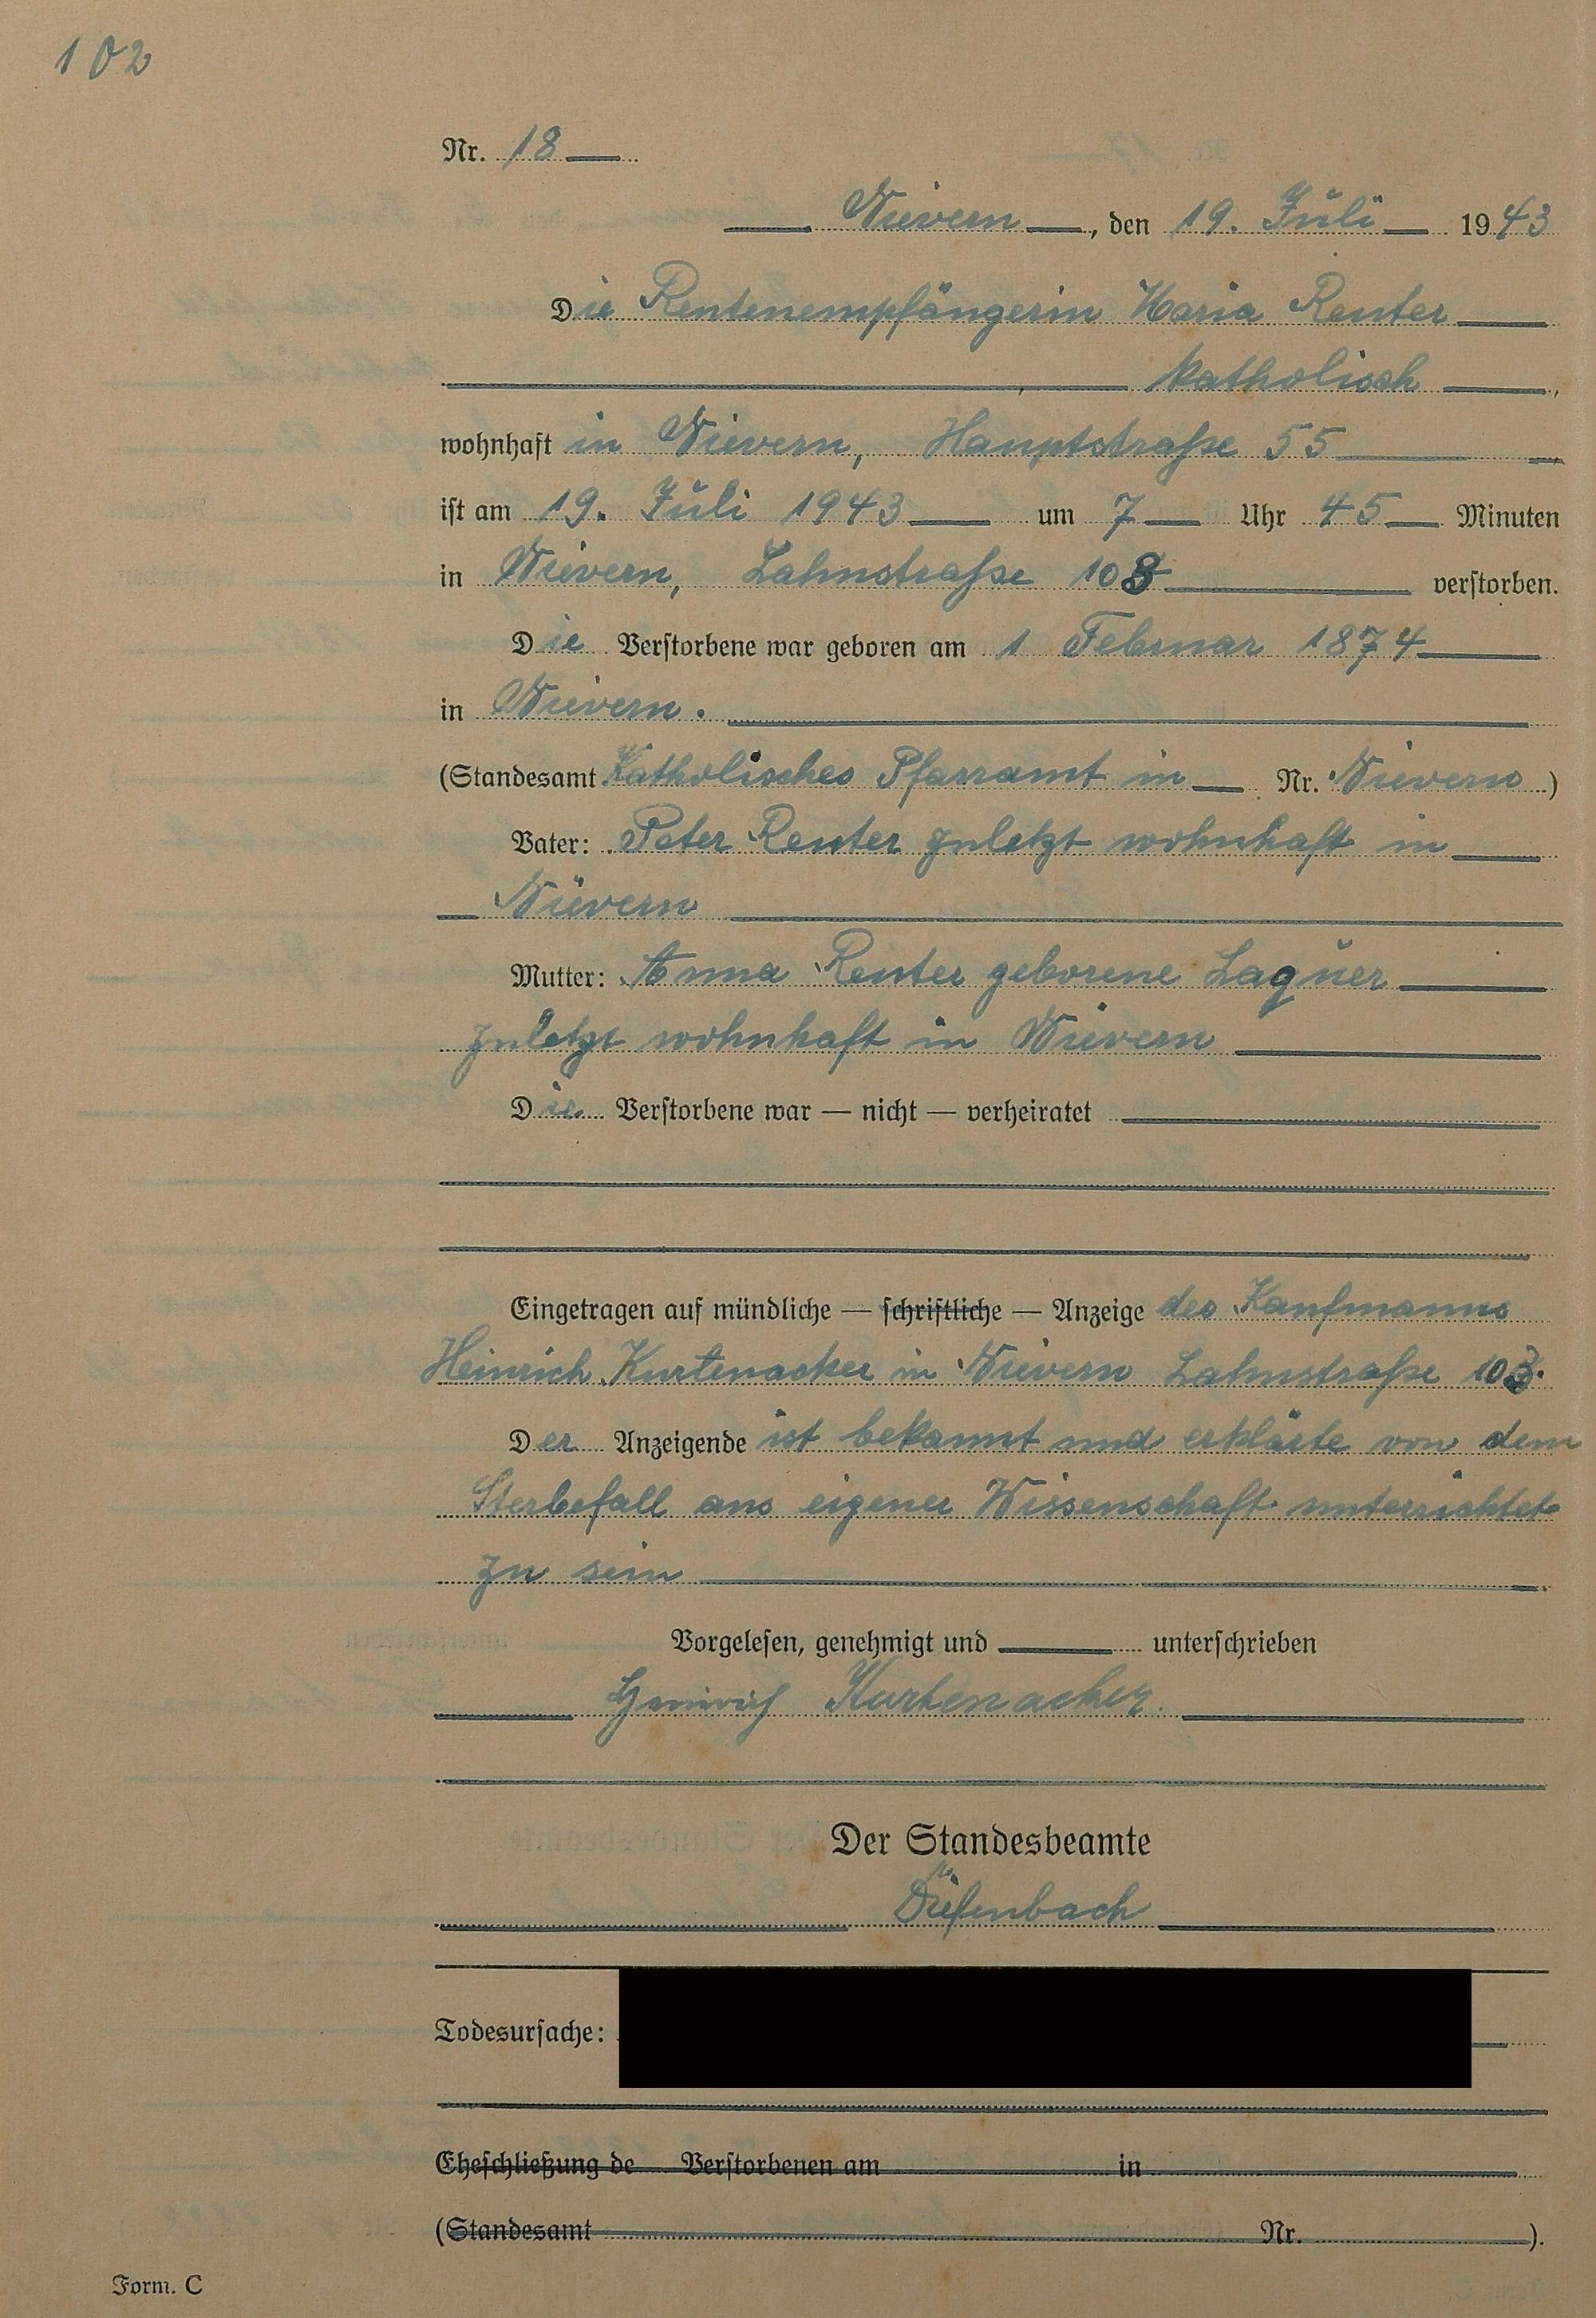 102
Nr. 18
Nievern, den 19. Juli 1943
Die Rentenempfängerin Maria Reuter
katholisch,
wohnhaft in Nievern, Hauptstraße 55
ist am 19. Juli 1943 um 7 Uhr 45 Minuten
in Nievern, Lahnstraße 103 verstorben.
Die Verstorbene war geboren am 1 Februar 1874
in Nievern.
(Standesamt Katholisches Pfarramt in Nr. Nievern)
Vater: Peter Reuter zuletzt wohnhaft in
Nievern
Mutter: Anna Reuter geborene Laquer
zuletzt wohnhaft in Nievern
Die Verstorbene war — nicht — verheiratet
Eingetragen auf mündliche — schriftliche — Anzeige des Kaufmanns
Heinrich Kurtenacker in Nievern Lahnstraße 103.
Der Anzeigende ist bekannt und erklärte von dem
Sterbefall aus eigener Wissenschaft unterrichtet
zu sein
Vorgelesen, genehmigt und unterschrieben
Heinrich Kurtenacker.
Der Standesbeamte
Diefenbach
Todesursache:
Eheschließung de Verstorbenen am in
(Standesamt Nr. ).
Form. C